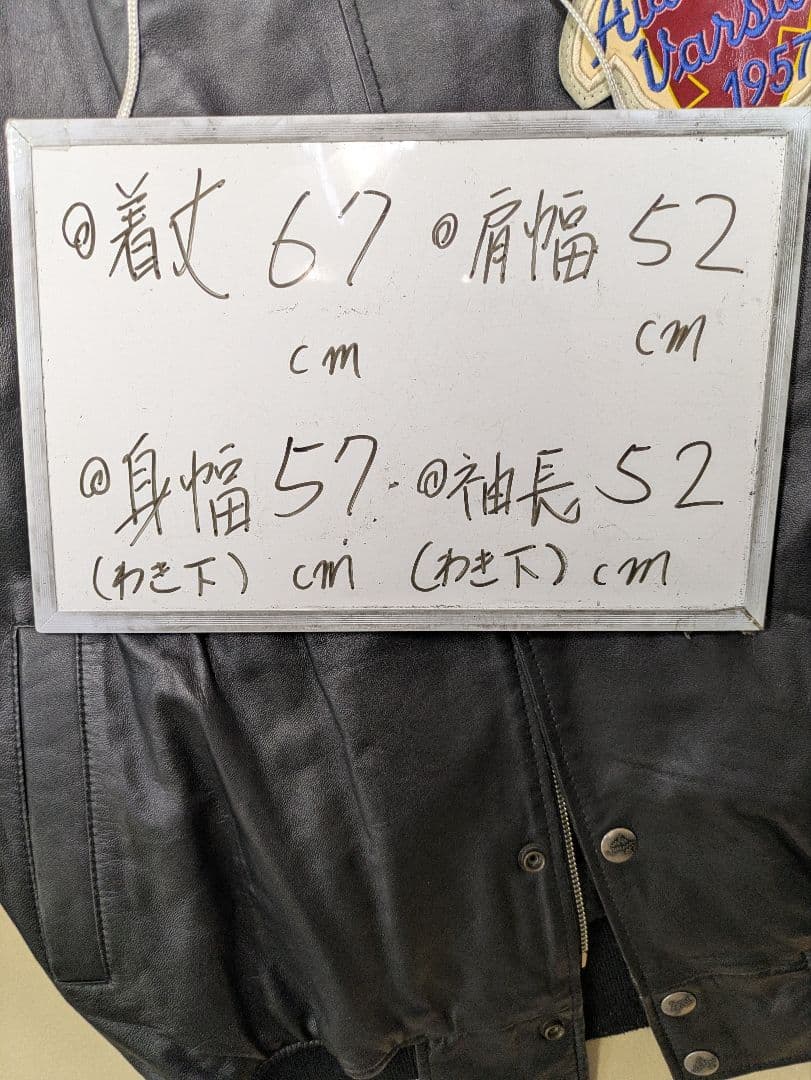 Varsi
1957
◎着丈 67 cm
◎肩幅 52 cm
◎身幅 57 cm
(わき下)
◎袖長 52 cm
(わき下)